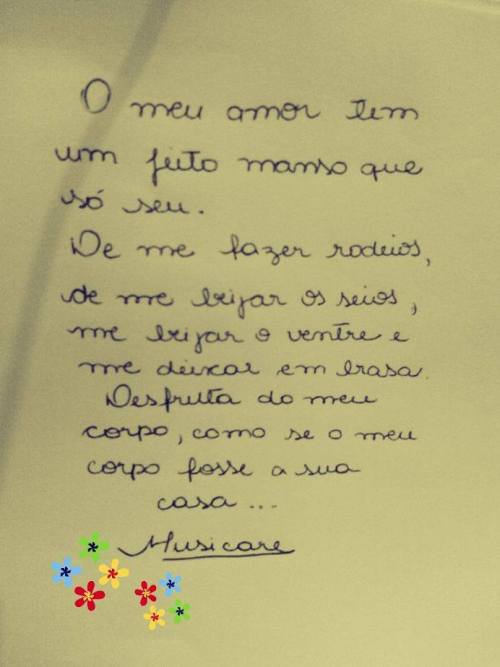 O meu amor tem
um jeito manso que
só seu.
De me fazer rodeios,
de me beijar os seios,
me beijar o ventre e
me deixar em brasa.
Desfruta do meu
corpo, como se o meu
corpo fosse a sua
casa...
Musicare